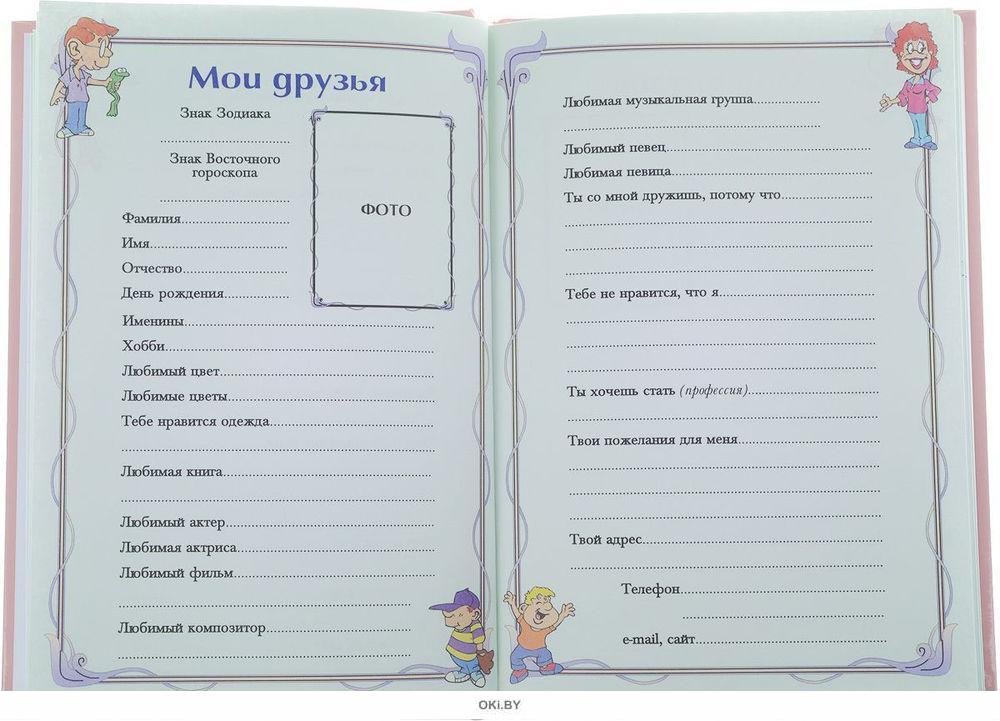 Мои друзья
Знак Зодиака
Знак Восточного
гороскопа
ФОТО
Фамилия
Имя
Отчество
День рождения
Именины
Хобби
Любимый цвет
Любимые цветы
Тебе нравится одежда
Любимая книга
Любимый актер
Любимая актриса
Любимый фильм
Любимый композитор
Любимая музыкальная группа
Любимый певец
Любимая певица
Ты со мной дружишь, потому что
Тебе не нравится, что я
Ты хочешь стать (профессия)
Твои пожелания для меня
Твой адрес
Телефон
e-mail, сайт
OKi.BY